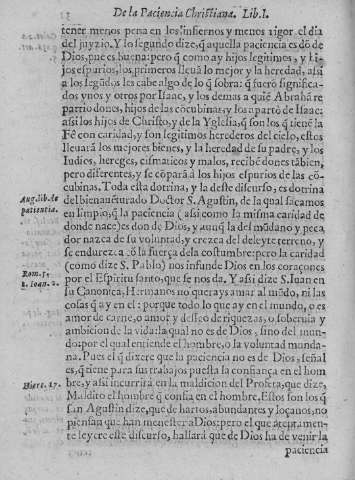 De la Paciencia Christiana. Lib. I.
tener menos pena en los infiernos y menos rigor el dia
del juyzio. Y lo segundo dize, q̃ aquella paciencia es dõ de
Dios, pue es buena: pero q̃ como ay hijos legitimos, y hi-
jos espurios, los primeros lleuã lo mejor y la heredad, assi
a los segũdos les cabe algo de lo q̃ sobra: q̃ fuerõ significa-
dos vnos y otros por Isaac, y los demas a quiē Abrahã re
partio dones, hijos de las cõcubinas, y los apartò de Isaac:
assi los hijos de Christo, y de la Yglesia, q̃ son los q̃ tienē la
Fè con caridad, y son legitimos herederos del cielo, estos
lleuarã los mejores bienes, y la heredad de su padre, y los
Iudios, hereges, cismaticos y malos, recibē dones tãbien,
pero diferentes, y se cõparã a los hijos espurios de las cõ-
cubinas. Toda esta dotrina, y la deste discurso, es dotrina
Aug. lib. de
patientia.
del bienauēturado Doctor S. Agustin, de la qual sacamos
en limpio, q̃ la paciencia (assi como la misma caridad de
donde nace) es don de Dios, y aunq̃ la del mũdano y peca
dor nazca de su voluntad, y crezca del deleyte terreno, y
se endurezca cõ la fuerça de la costumbre: pero la caridad
Rom. 5.
1. Ioan. 2.
(como dize S. Pablo) nos infunde Dios en los coraçones
por el Espiritu santo, que se nos da. Y assi dize S. Iuan en
su Canonica, Hermanos no querays amar al mũdo, ni las
cosas q̃ ay en el: porque todo lo que ay en el mundo, o es
amor de carne, o amor y desseo de riquezas, o soberuia y
ambicion de la vida: la qual no es de Dios, sino del mun-
do: por el qual entiende el hombre, o la voluntad munda-
na. Pues el q̃ dixere que la paciencia no es de Dios, señal
es, q̃ tiene para sus trabajos puesta la confiança en el hom
Hiere. 17.
bre, y assi incurrirà en la maldicion del Profeta, que dize,
Maldito el hombre q̃ confia en el hombre, Estos son los q̃
san Agustin dize, que de hartos, abundantes y loçanos, no
piensan que han menester a Dios: pero el que atentamen-
te leyere este discurso, hallarà que de Dios ha de venir la
paciencia